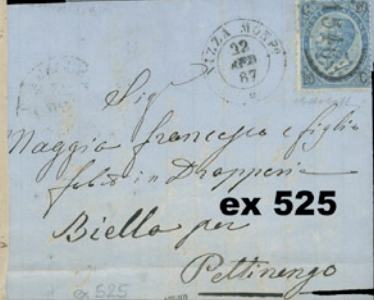 NIZZA MONF
22
67
Sig
Maggia francesco e figlio
in Drapperie
ex 525
Biella per
Pettinengo
ex 525